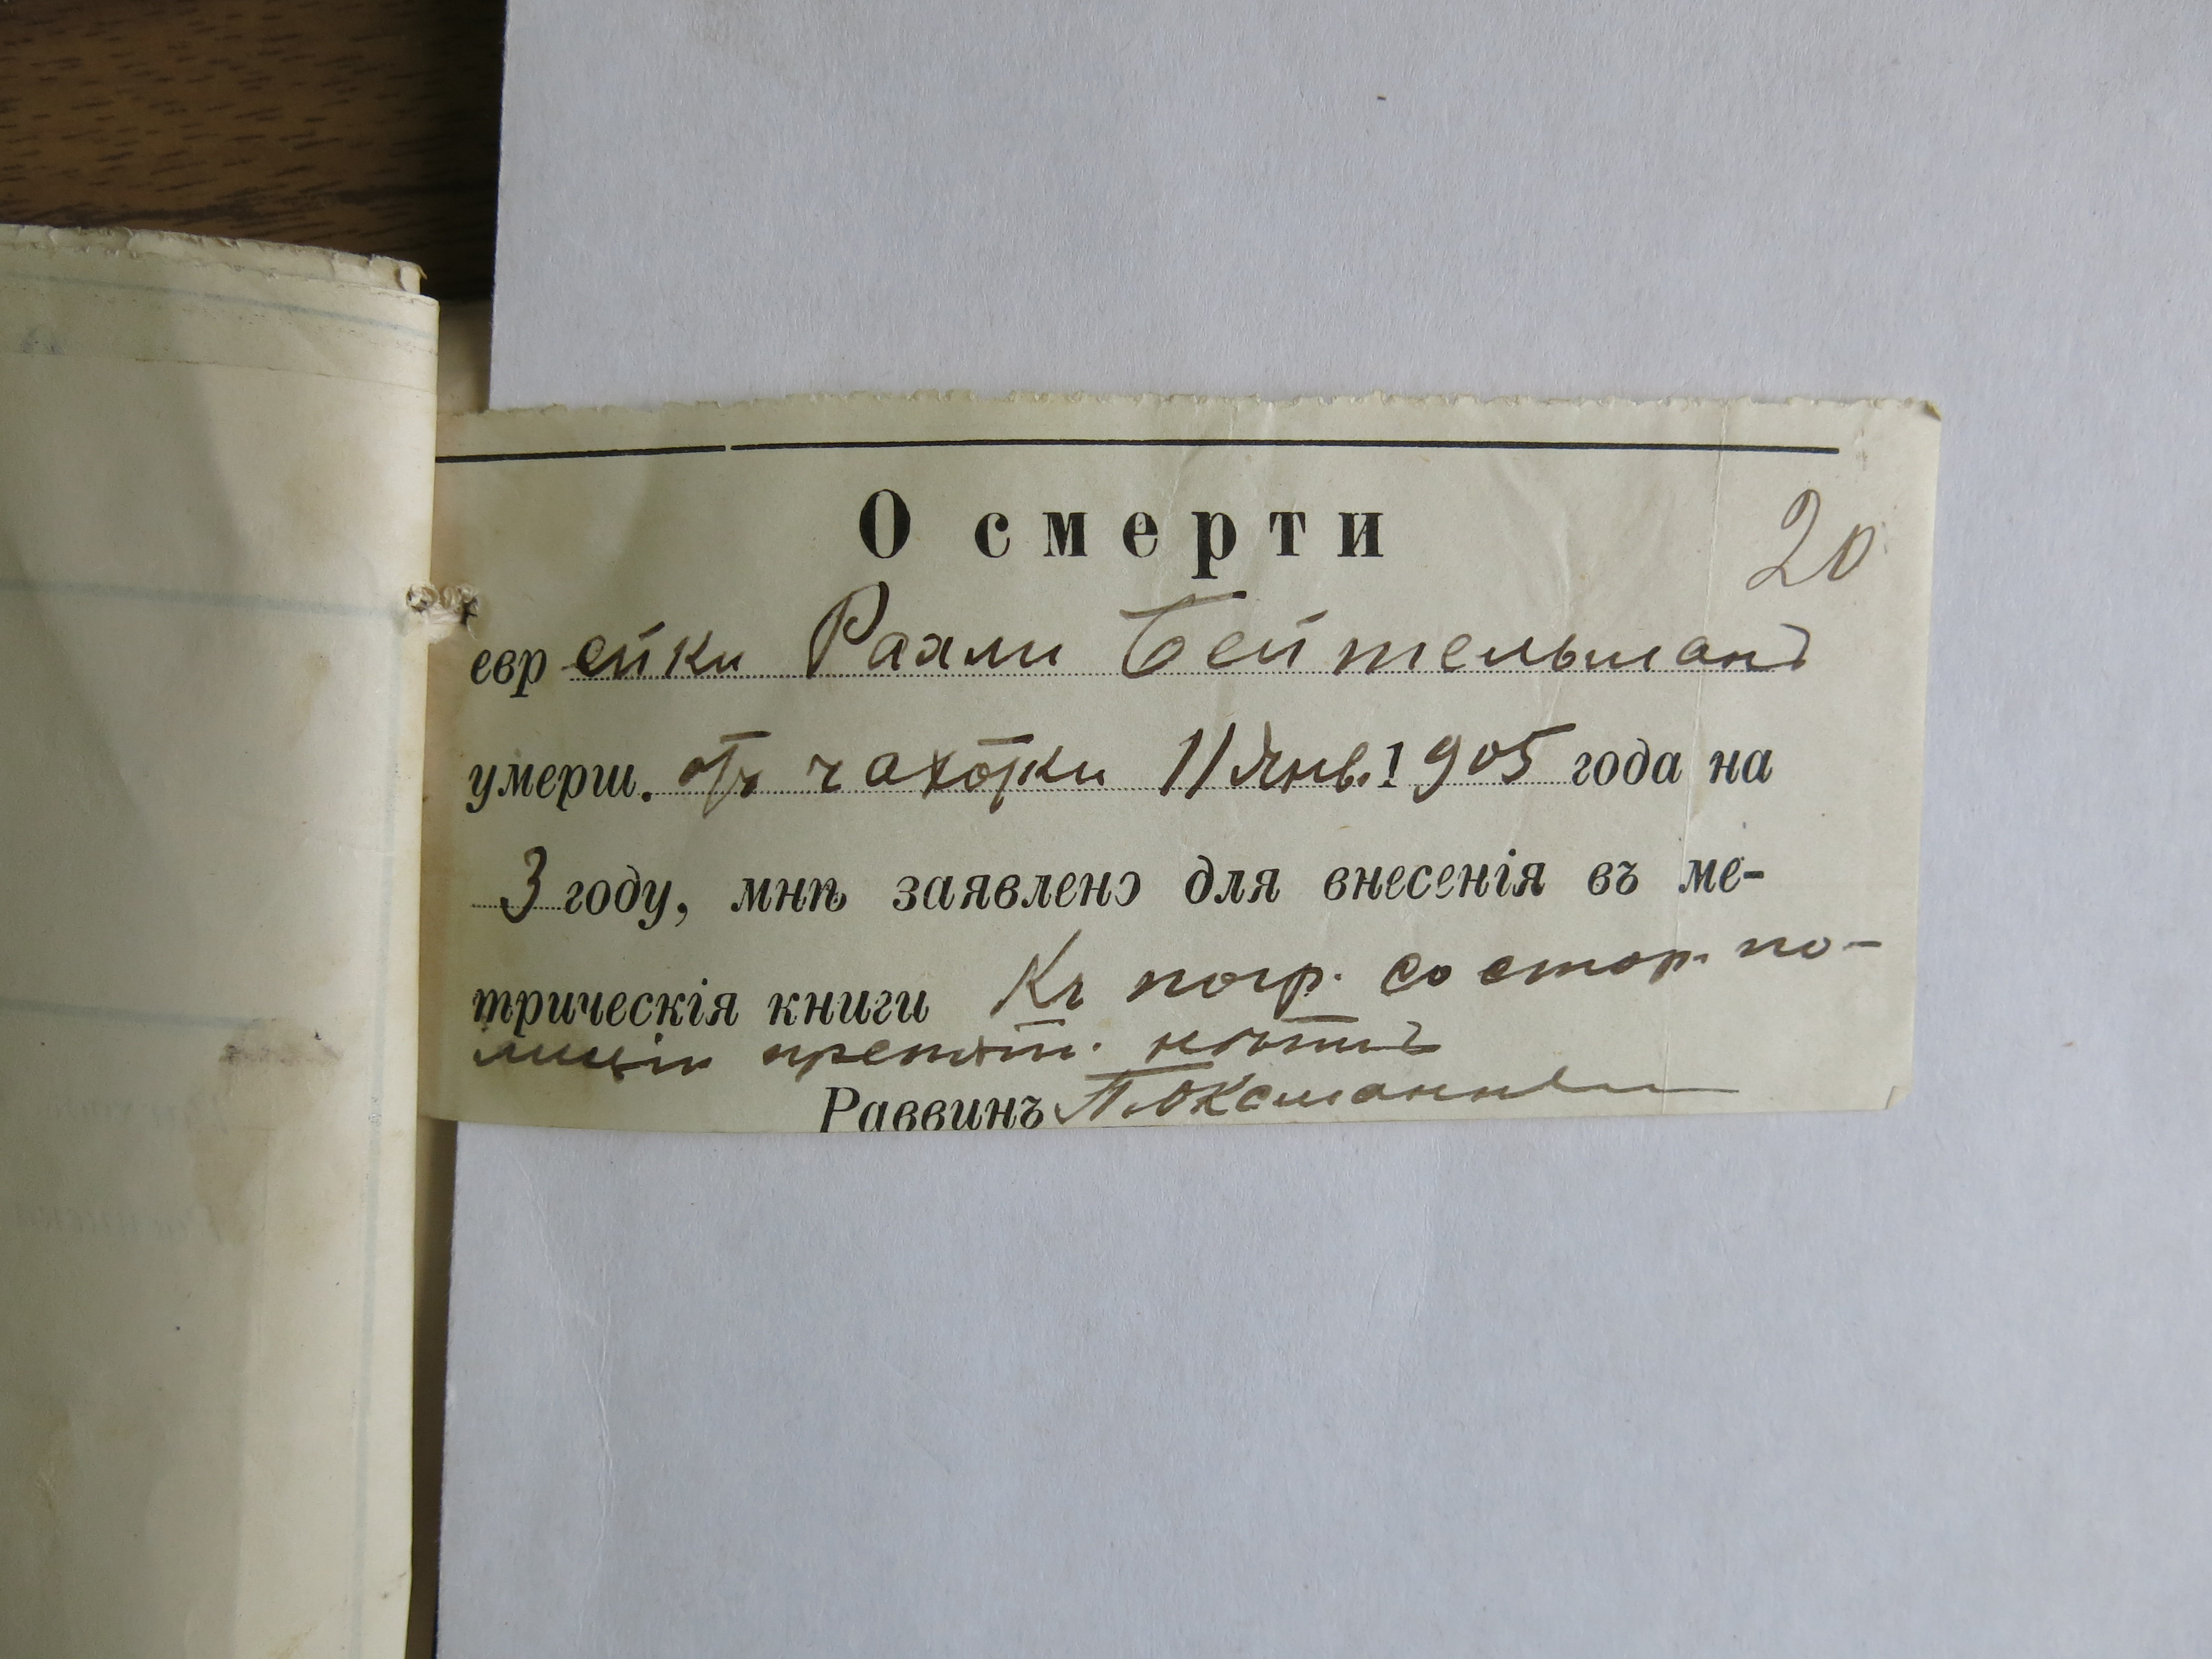 О смерти
20
еврейки Рахли Бейтельманъ
умерш. отъ чахотки 11 Янв. 1905 года на
3 году, мнѣ заявлено для внесенія въ ме-
трическія книги Къ погр. со стор. по-
лиціи препят. нѣтъ
Раввинъ П. Оксман